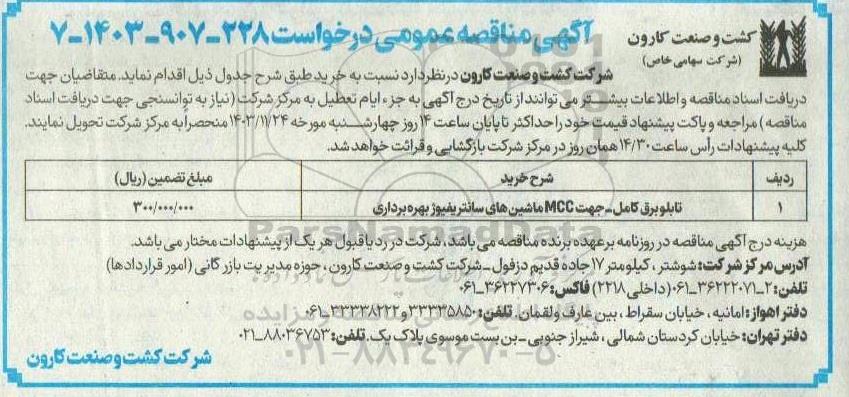 آگهی مناقصه عمومی درخواست ۲۲۸-۹۰۷-۱۴۰۳-۷
کشت و صنعت کارون
(شرکت سهامی خاص)
شرکت کشت و صنعت کارون در نظر دارد نسبت به خرید طبق شرح جدول ذیل اقدام نماید. متقاضیان جهت
دریافت اسناد مناقصه و اطلاعات بیشتر می توانند از تاریخ درج آگهی به جزء ایام تعطیل به مرکز شرکت (نیاز به توانسنجی جهت دریافت اسناد
مناقصه) مراجعه و پاکت پیشنهاد قیمت خود را حداکثر تا پایان ساعت ۱۴ روز چهارشنبه مورخه ۱۴۰۳/۱۱/۲۴ منحصراً به مرکز شرکت تحویل نمایند.
کلیه پیشنهادات رأس ساعت ۱۴/۳۰ همان روز در مرکز شرکت بازگشایی و قرائت خواهد شد.
ردیف شرح خرید مبلغ تضمین (ریال)
۱ تابلو برق کامل - جهت MCC ماشین های سانتریفیوژ بهره برداری ۳۰۰/۰۰۰/۰۰۰
هزینه درج آگهی مناقصه در روزنامه بر عهده برنده مناقصه می باشد، شرکت در رد یا قبول هر یک از پیشنهادات مختار می باشد.
آدرس مرکز شرکت: شوشتر، کیلومتر ۱۷ جاده قدیم دزفول - شرکت کشت و صنعت کارون، حوزه مدیریت بازرگانی (امور قراردادها)
تلفن: ۲-۳۶۲۲۲۰۷۱-۰۶۱ (داخلی ۲۲۱۸) فاکس: ۳۶۲۲۷۳۰۶-۰۶۱
دفتر اهواز: امانیه، خیابان سقراط، بین عارف ولقمان. تلفن: ۳۳۳۳۵۸۵۰ و ۳۳۳۳۸۲۲۲-۰۶۱
دفتر تهران: خیابان کردستان شمالی، شیراز جنوبی - بن بست موسوی پلاک یک. تلفن: ۸۸۰۳۶۷۵۳-۰۲۱
شرکت کشت و صنعت کارون
ParsNamadData
۰۲۱-۸۸۳۴۹۶۷۰-۵